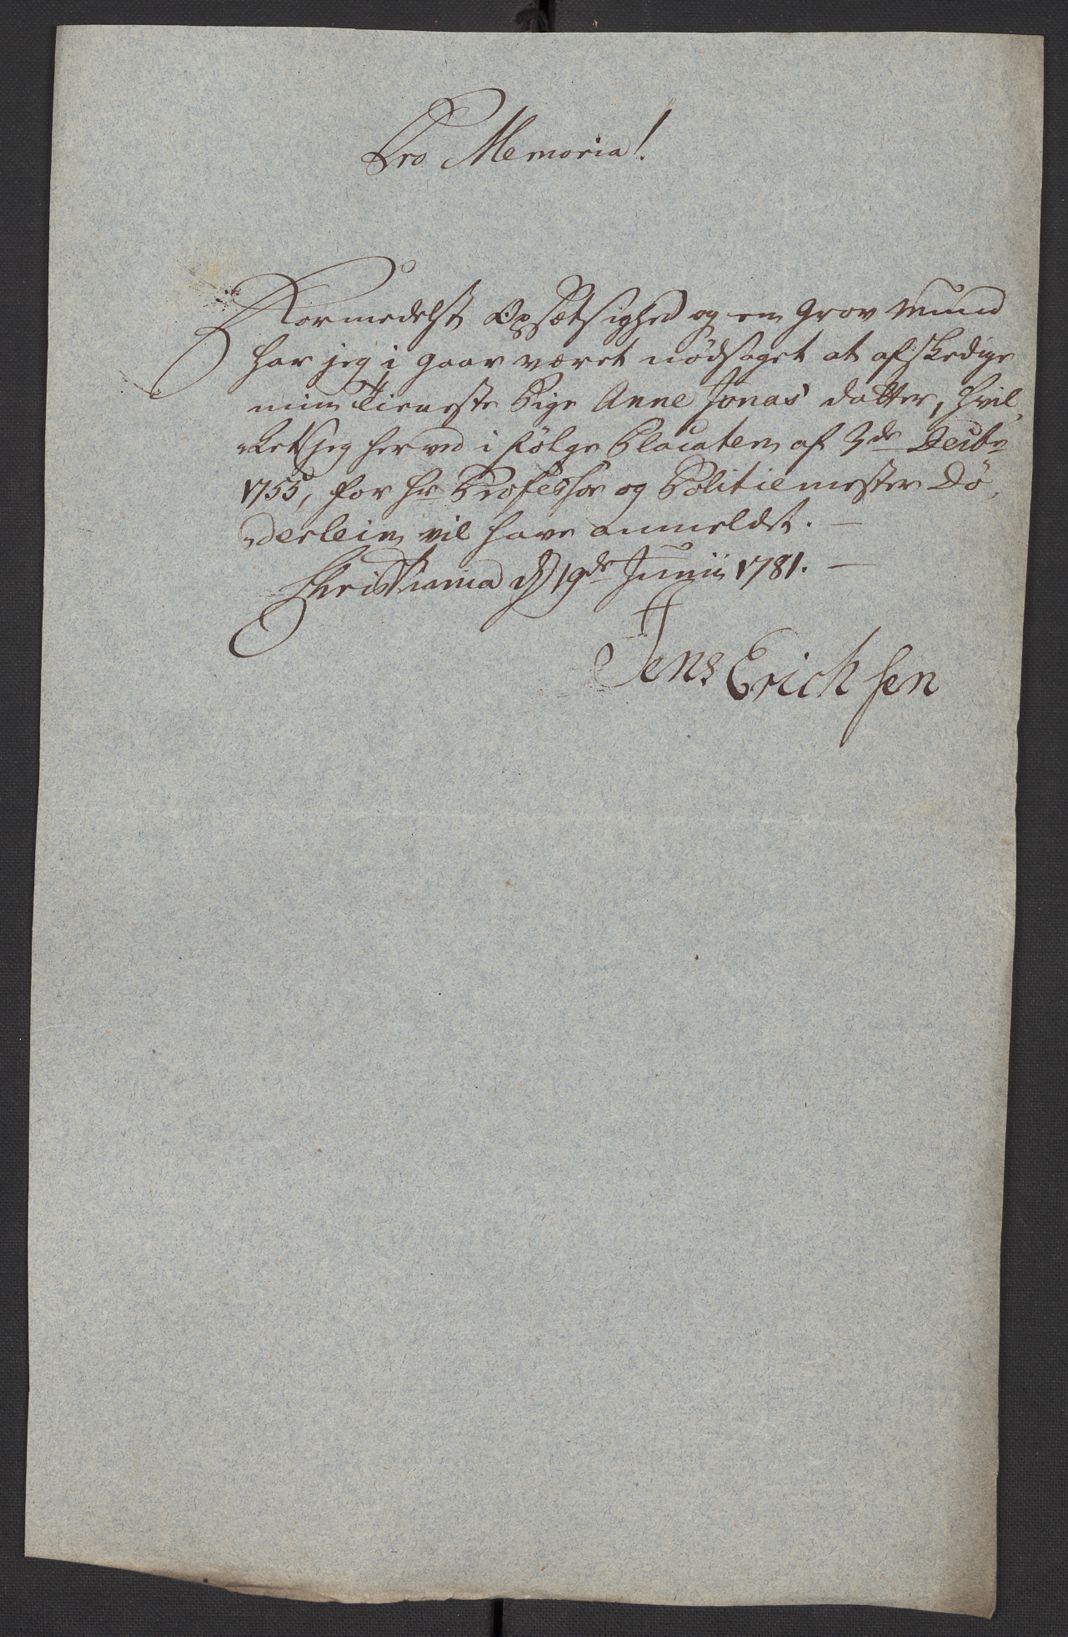 Pro Memoria!
Formedelst Opsætsighed og en grov Mund
har jeg i gaar været nødsaget at afskedige
min Tieneste Pige Anne Jonas datter, hvil¬
ket jeg herved i følge Placaten af 3de Decbr
1755, for Hr Professor og Politiemester Dø¬
derlein vil have anmeldt. —
Christiania d 19de Junii 1781. —
Jens Erichsen